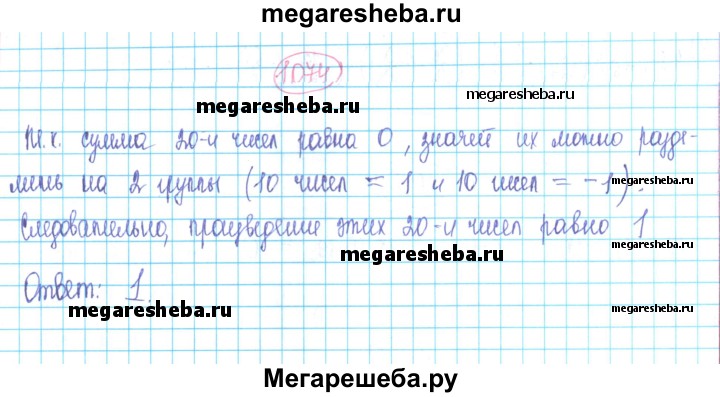 megaresheba.ru
1074
megaresheba.ru
Т.к. сумма 20-и чисел равна 0, значит их можно разде-
лить на 2 группы (10 чисел = 1 и 10 чисел = -1).
megaresheba.ru
Следовательно, произведение этих 20-и чисел равно 1
megaresheba.ru
Ответ: 1.
megaresheba.ru
megaresheba.ru
Мегарешеба.ру